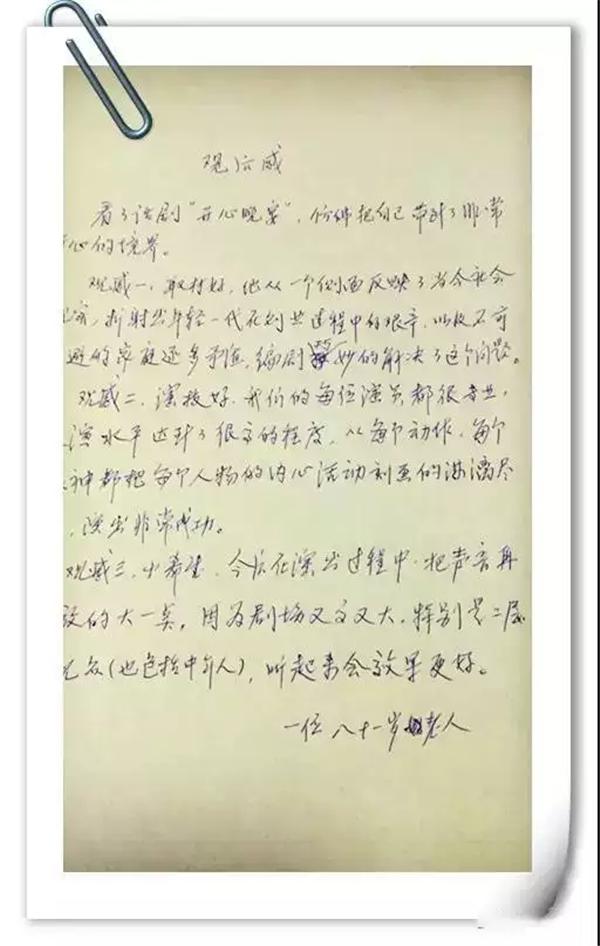 观后感
看了话剧“开心晚宴”,仿佛把自己带到了非常
心的境界。
观感一、取材好,他从一个侧面反映了当今社会
折射出年轻一代在创业过程中的艰辛,以及不可
避的家庭逐多利益,编剧妙的解决了这个问题。
观感二、演技好。我们的每位演员都很专业,
演水平达到了很高的程度,从每个动作、每个
神都把每个人物的内心活动刻画的淋漓尽
,演出非常成功。
观感三、小希望,今后在演出过程中,把声音再
放的大一点,因为剧场又高又大,特别是二层
观众(也包括中年人),听起来会效果更好。
一位八十一岁老人